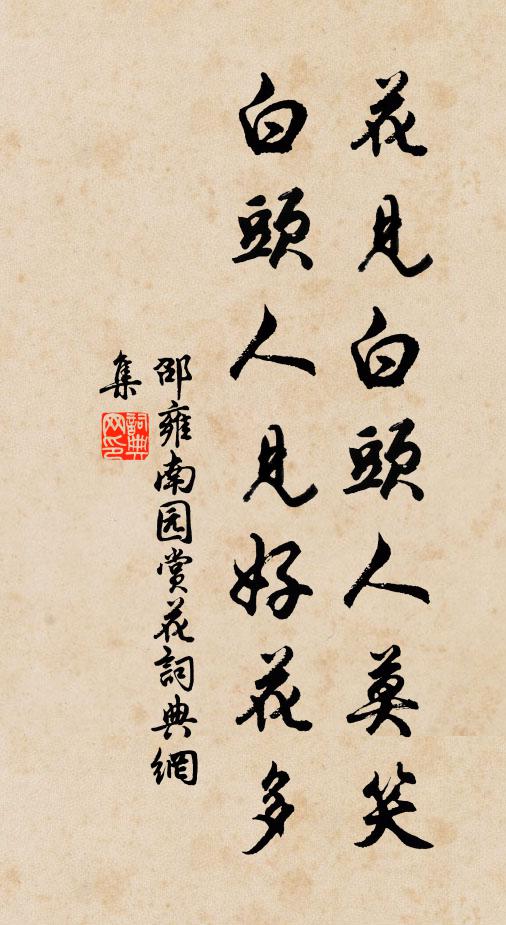 花見白頭人莫笑
白頭人見好花多
邵雍南园賞花詞典網
集
詞典
网印